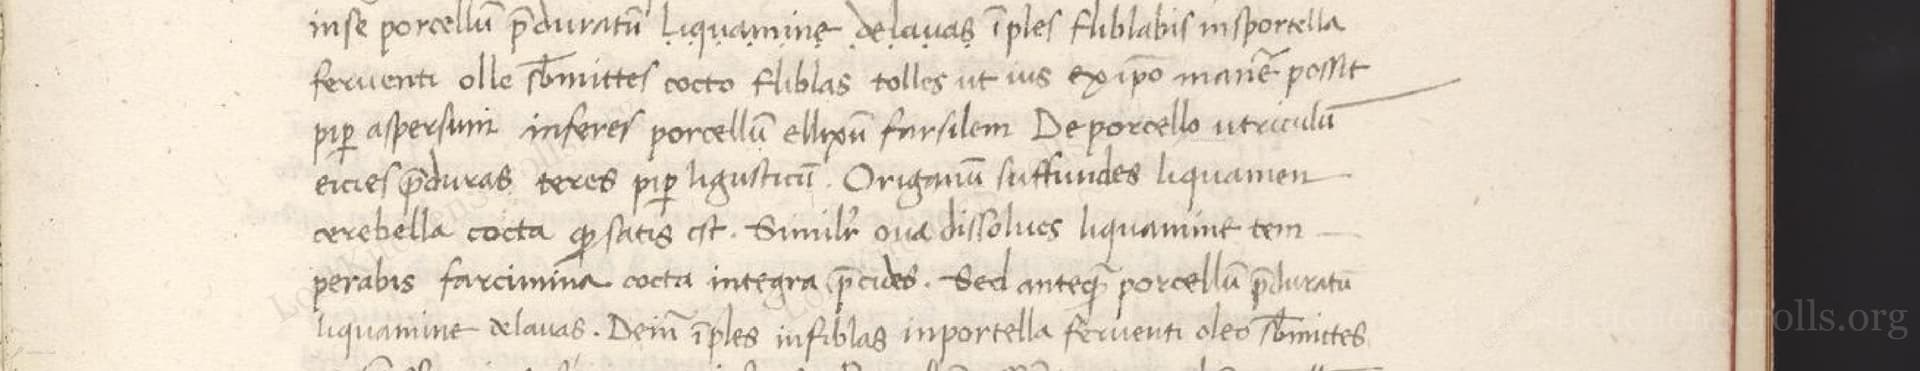 inse porcellū p̄duratū liquamine delauas īples fliblabis insportella
feruenti olle sb̄mittes cocto fliblas tolles ut ius ex ip̄o manē possit
pip̄ aspersum inferes porcellū ellixū farsilem De porcello utriculū
eicies p̄duras teres pip̄ ligusticū. Origanū suffundes liquamen
cerebella cocta qp̄ satis est. Similr̄ oua dissolues liquamine tem
perabis farcimina cocta integra p̄cides. Sed anteq̄ porcellū p̄duratū
liquamine delauas. Dein̄ īples infiblas inportella feruenti oleo sb̄mittes